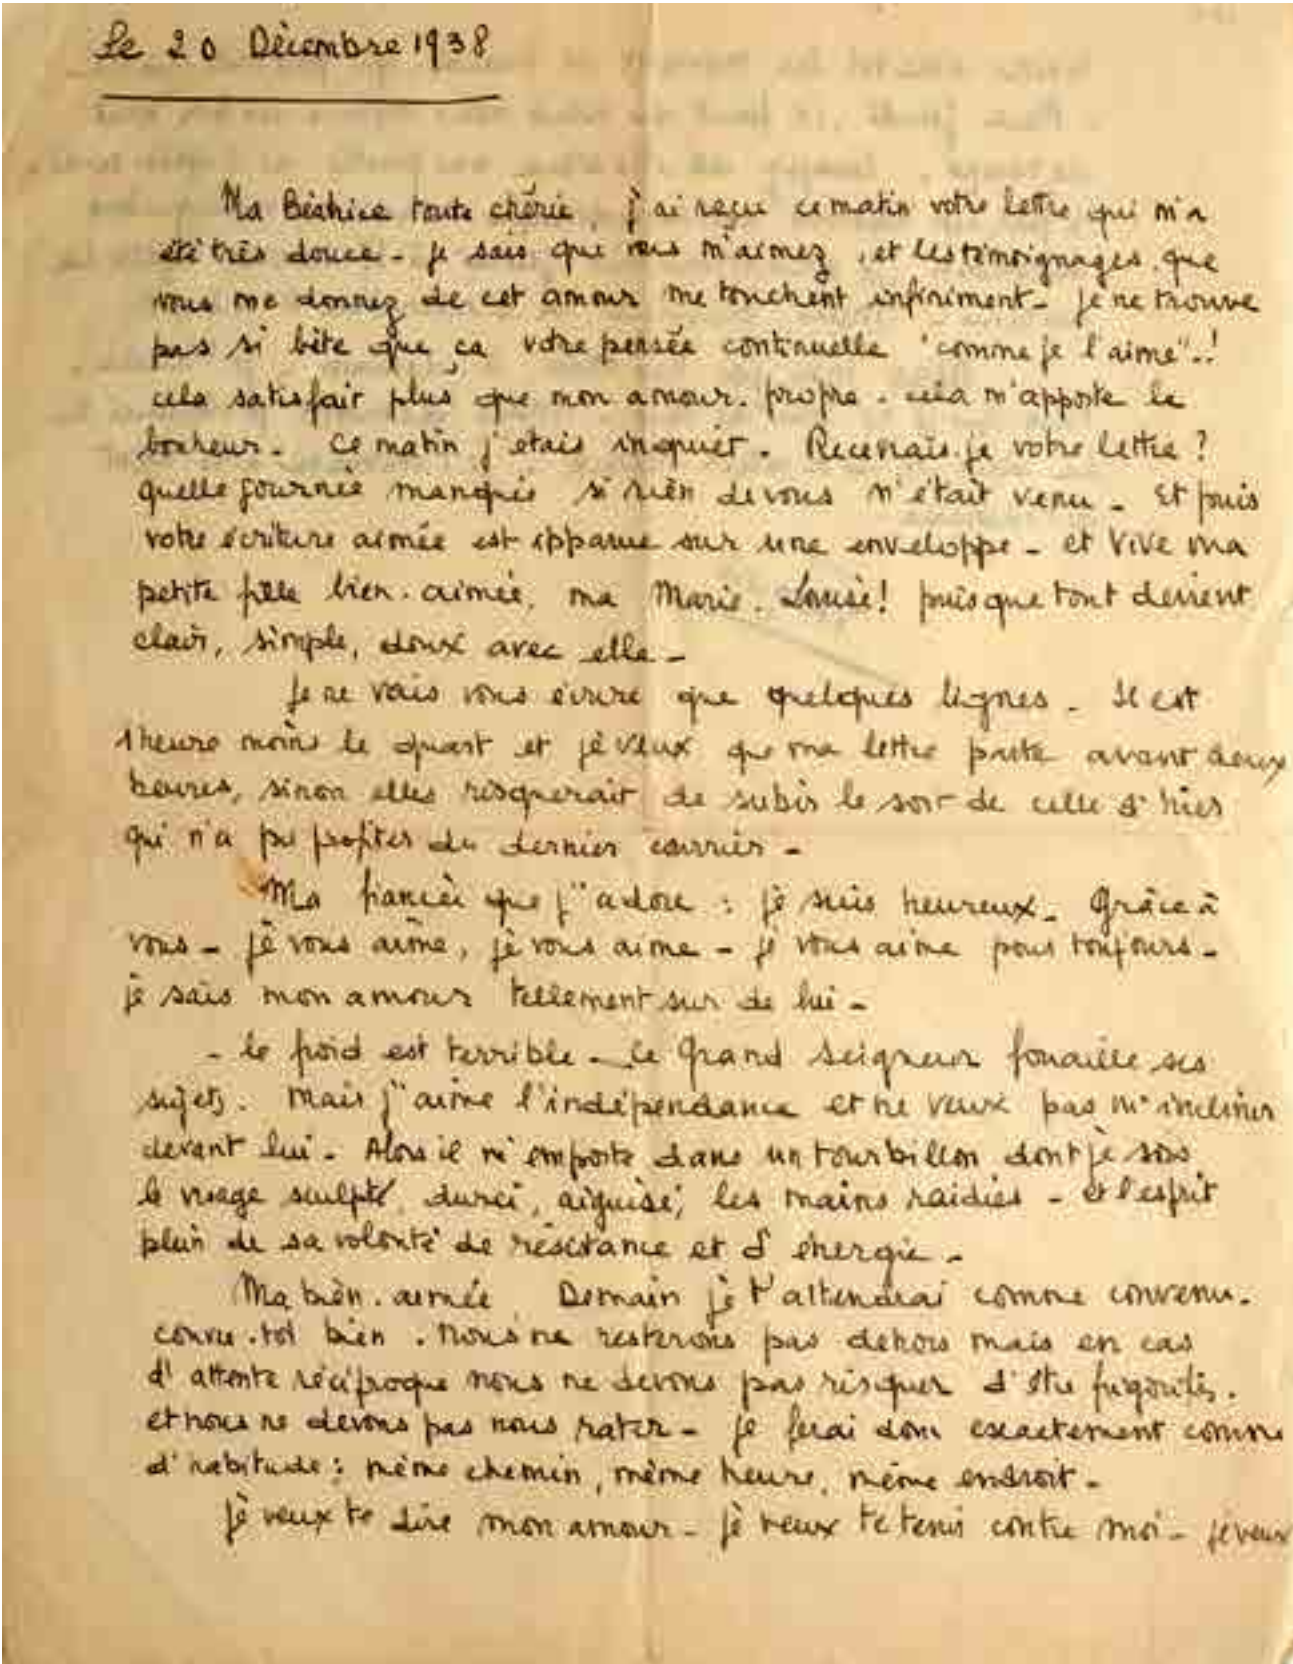 Le 20 Décembre 1938
Ma Béatrice toute chérie, j'ai reçu ce matin votre lettre qui m'a
été très douce - je sais que vous m'aimez, et les témoignages que
vous me donnez de cet amour me touchent infiniment - je ne trouve
pas si bête que ça votre pensée continuelle "comme je l'aime"..!
cela satisfait plus que mon amour-propre - cela m'apporte le
bonheur - Ce matin j'étais inquiet. Recevrais-je votre lettre ?
quelle journée manquée si rien de vous n'était venu - Et puis
votre écriture aimée est apparue sur une enveloppe - et Vive ma
petite fille bien-aimée, ma Marie-Louise! puisque tout devient
clair, simple, doux avec elle -
Je ne vais vous écrire que quelques lignes - Il est
1 heure moins le quart et je veux que ma lettre parte avant deux
heures, sinon elles risquerait de subir le sort de celle d'hier
qui n'a pu profiter du dernier courrier -
Ma fiancée que j'adore : je suis heureux - Grâce à
vous - je vous aime, je vous aime - je vous aime pour toujours -
je sais mon amour tellement sur de lui -
- le froid est terrible - Le Grand Seigneur fouaille ses
sujets. Mais j'aime l'indépendance et ne veux pas m'incliner
devant lui - Alors il m'emporte dans un tourbillon dont je sors
le visage sculpté, durci, aiguisé, les mains raidies - et l'esprit
plein de sa volonté de résistance et d'énergie -
Ma bien-aimée, Demain je t'attendrai comme convenu -
couvre-toi bien. Nous ne resterons pas dehors mais en cas
d'attente réciproque nous ne devons pas risquer d'être frigorifiés.
et nous ne devons pas nous rater - je ferai donc exactement comme
d'habitude : même chemin, même heure, même endroit -
je veux te dire mon amour - je veux te tenir contre moi - je veux